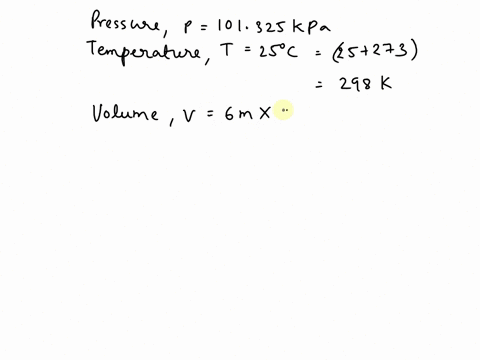 Pressure, P = 101.325 kPa
Temperature, T = 25°C = (25+273)
= 298 K
Volume, V = 6m X